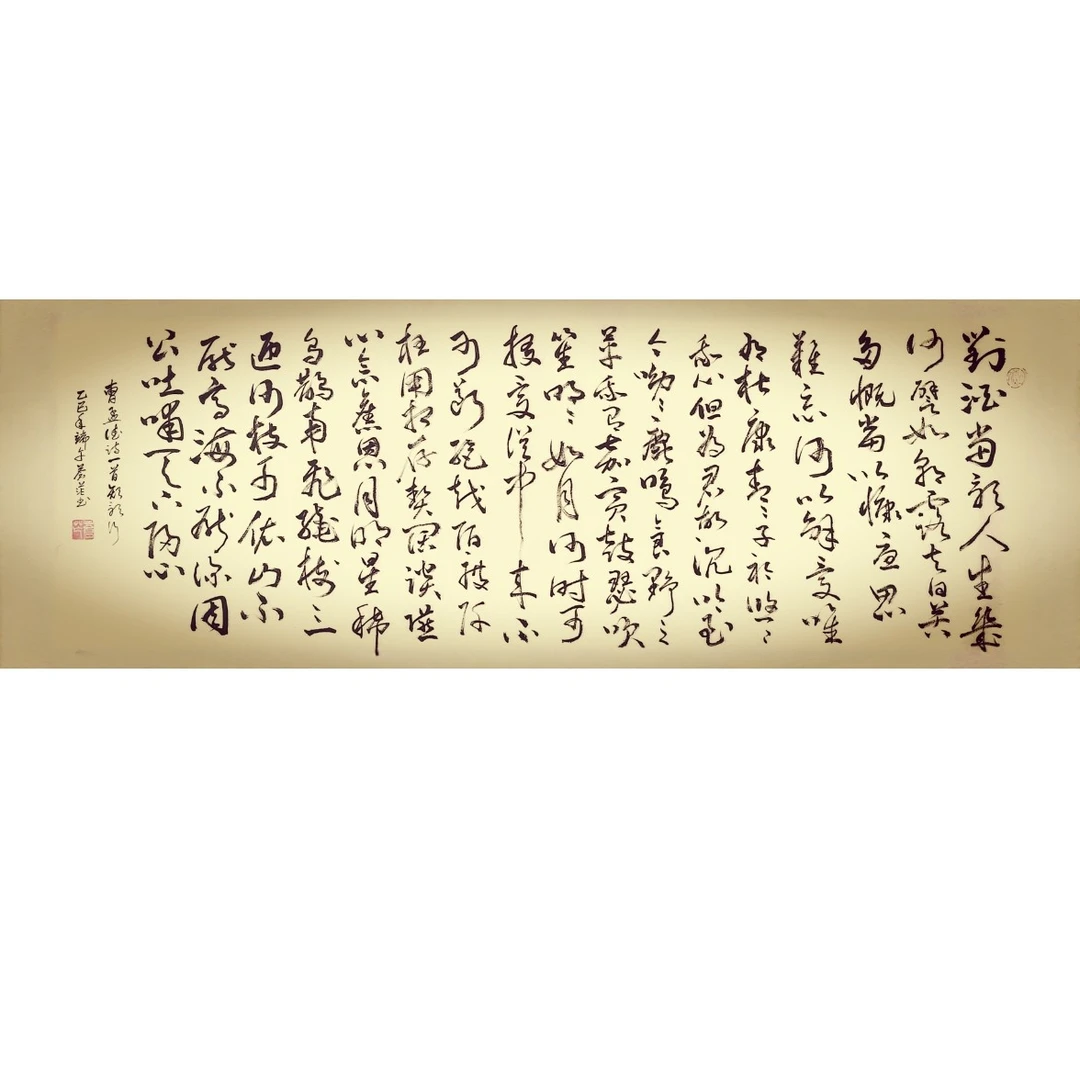 對酒當歌人生幾
何譬如朝露去日苦
多慨當以慷憂思
難忘何以解憂唯
有杜康青〻子衿悠〻
我心但為君故沉吟至
今呦〻鹿鳴食野之
苹我有嘉賓鼓瑟吹
笙明〻如月何时可
掇憂從中來不
可斷絕越陌度阡
枉用相存契闊談讌
心念舊恩月明星稀
烏鵲南飛繞樹三
匝何枝可依山不
厭高海不厭深周
公吐哺天下歸心
曹孟德詩一首短歌行
乙巳年端午